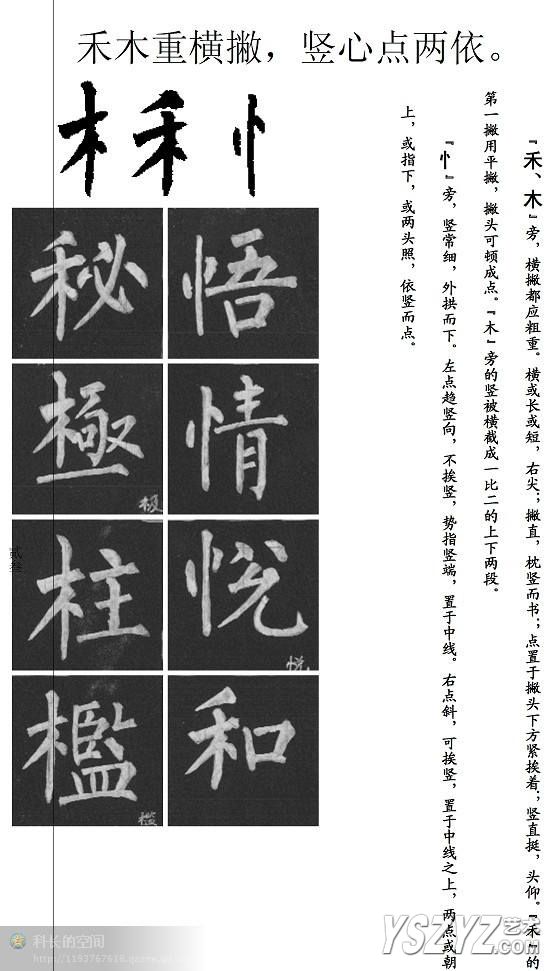 禾木重横撇，竖心点两依。
木 禾 忄
『禾、木』旁，横撇都应粗重。横或长或短，右尖；撇直，枕竖而书；点置于撇头下方紧挨着；竖直挺，头仰。『禾』的
第一撇用平撇，撇头可顿成点。『木』旁的竖被横截成一比二的上下两段。
『忄』旁，竖常细，外拱而下。左点趋竖向，不挨竖，势指竖端，置于中线。右点斜，可挨竖，置于中线之上，两点或朝
上，或指下，或两头照，依竖而点。
秘 悟
極 情
极
柱 悦
悦
檻 和
槛
贰叁
科长的空间
http://1193767618.qzone.qq.
YSZYZ艺术
.com